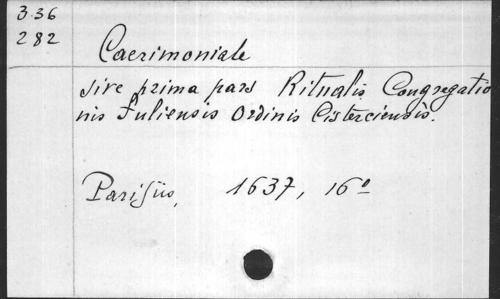 3.36
282
Caerimoniale
sive prima pars Ritualis Congregatio
nis Fuliensis Ordinis Cisterciensis.
Parisiis, 1637, 16º